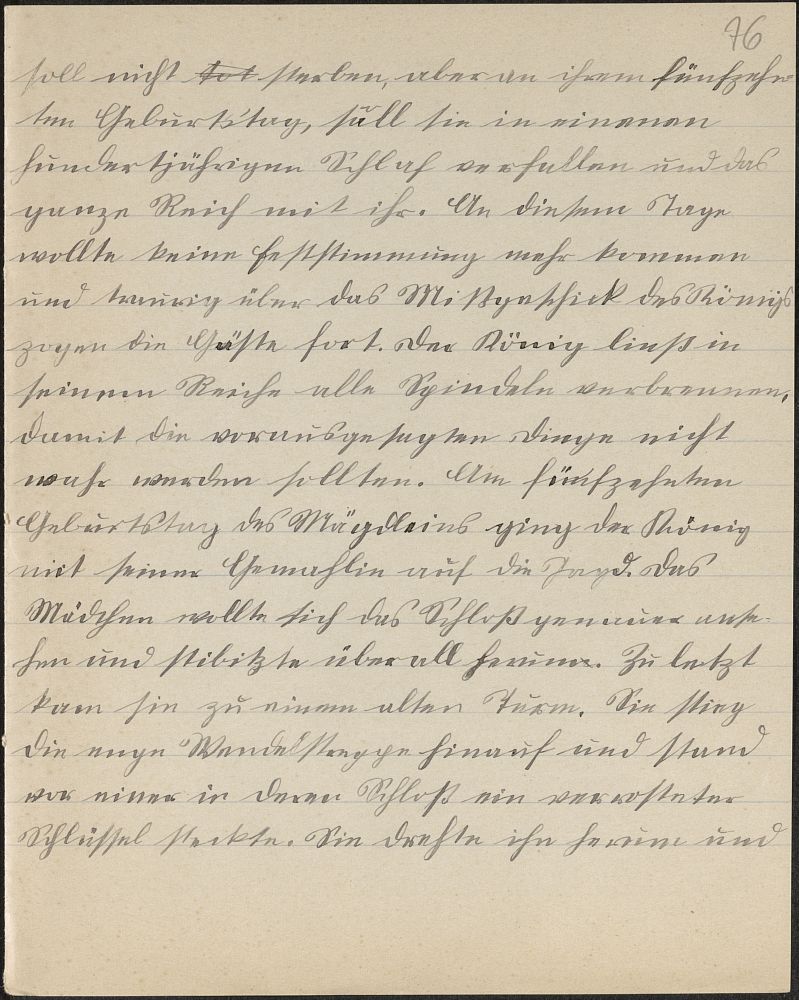 76
soll nicht tot sterben, aber an ihrem fünfzehn-
ten Geburtstag, soll sie in einenen
hundertjährigen Schlaf verfallen und das
ganze Reich mit ihr. An diesem Tage
wollte keine Feststimmung mehr kommen
und traurig über das Mißgeschick des Königs
zogen die Gäste fort. Der König ließ in
seinem Reiche alle Spindeln verbrennen,
damit die vorausgesagten Dinge nicht
wahr werden sollten. Am fünfzehnten
Geburtstag des Mägdleins ging der König
mit seiner Gemahlin auf die Jagd. Das
Mädchen wollte sich das Schloß genauer anse-
hen und stibitzte überall herum. Zu letzt
kam sie zu einem alten Turm. Sie stieg
die enge Wendeltreppe hinauf und stand
vor einer in deren Schloß ein verrosteter
Schlüssel steckte. Sie drehte ihn herum und